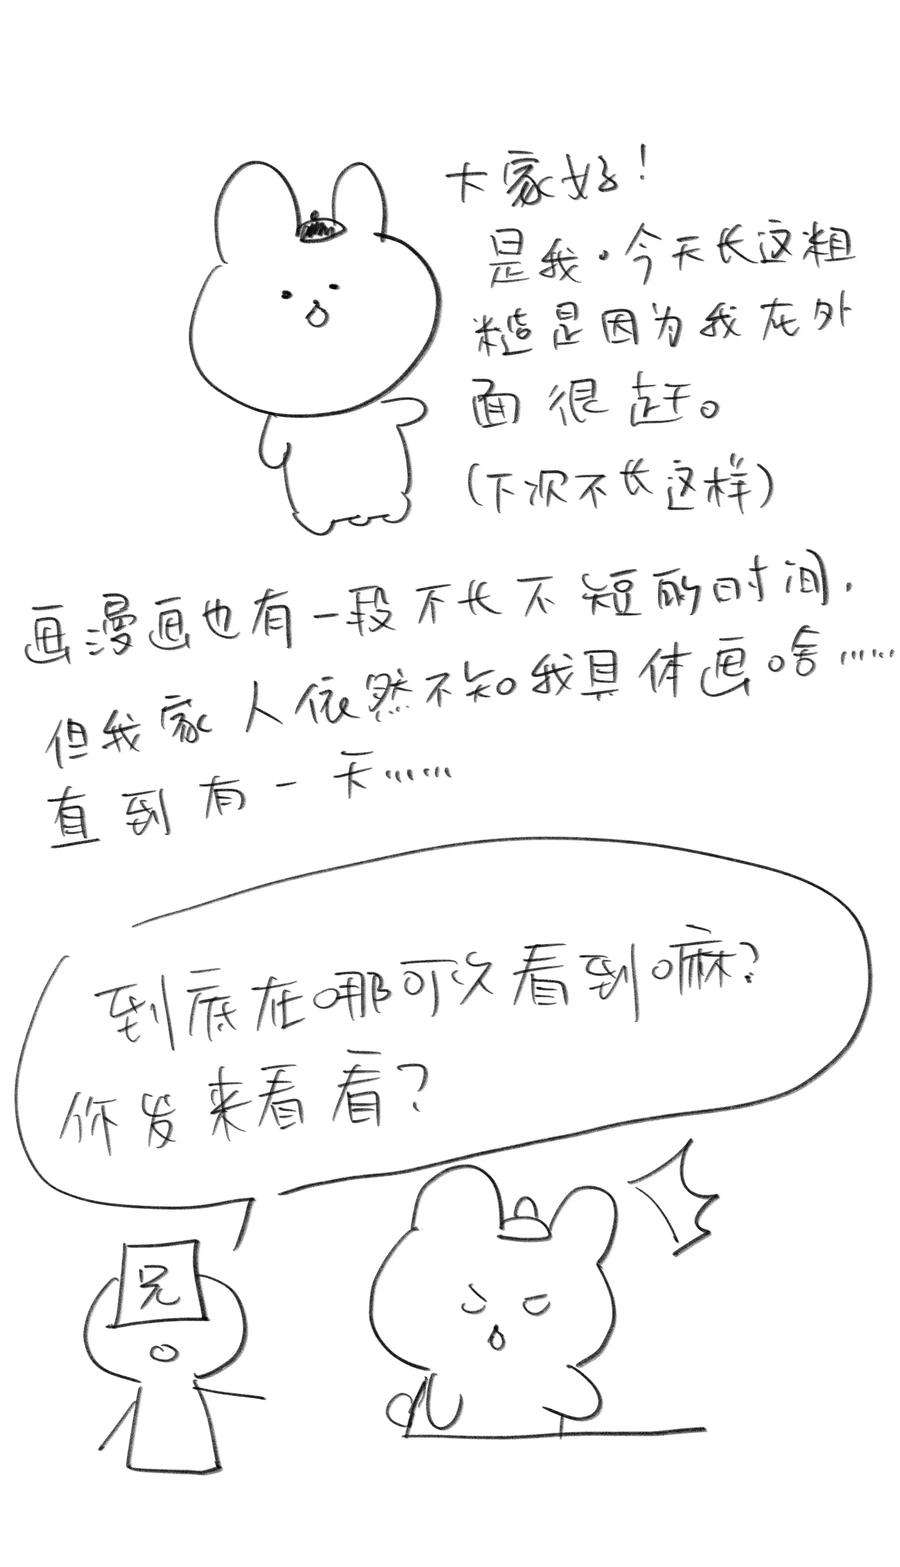 大家好！
是我.今天长这粗
糙是因为我在外
面很赶。
(下次不长这样)
画漫画也有一段不长不短的时间.
但我家人依然不知我具体画啥……
直到有一天……
到底在哪可以看到嘛？
你发来看看？
兄